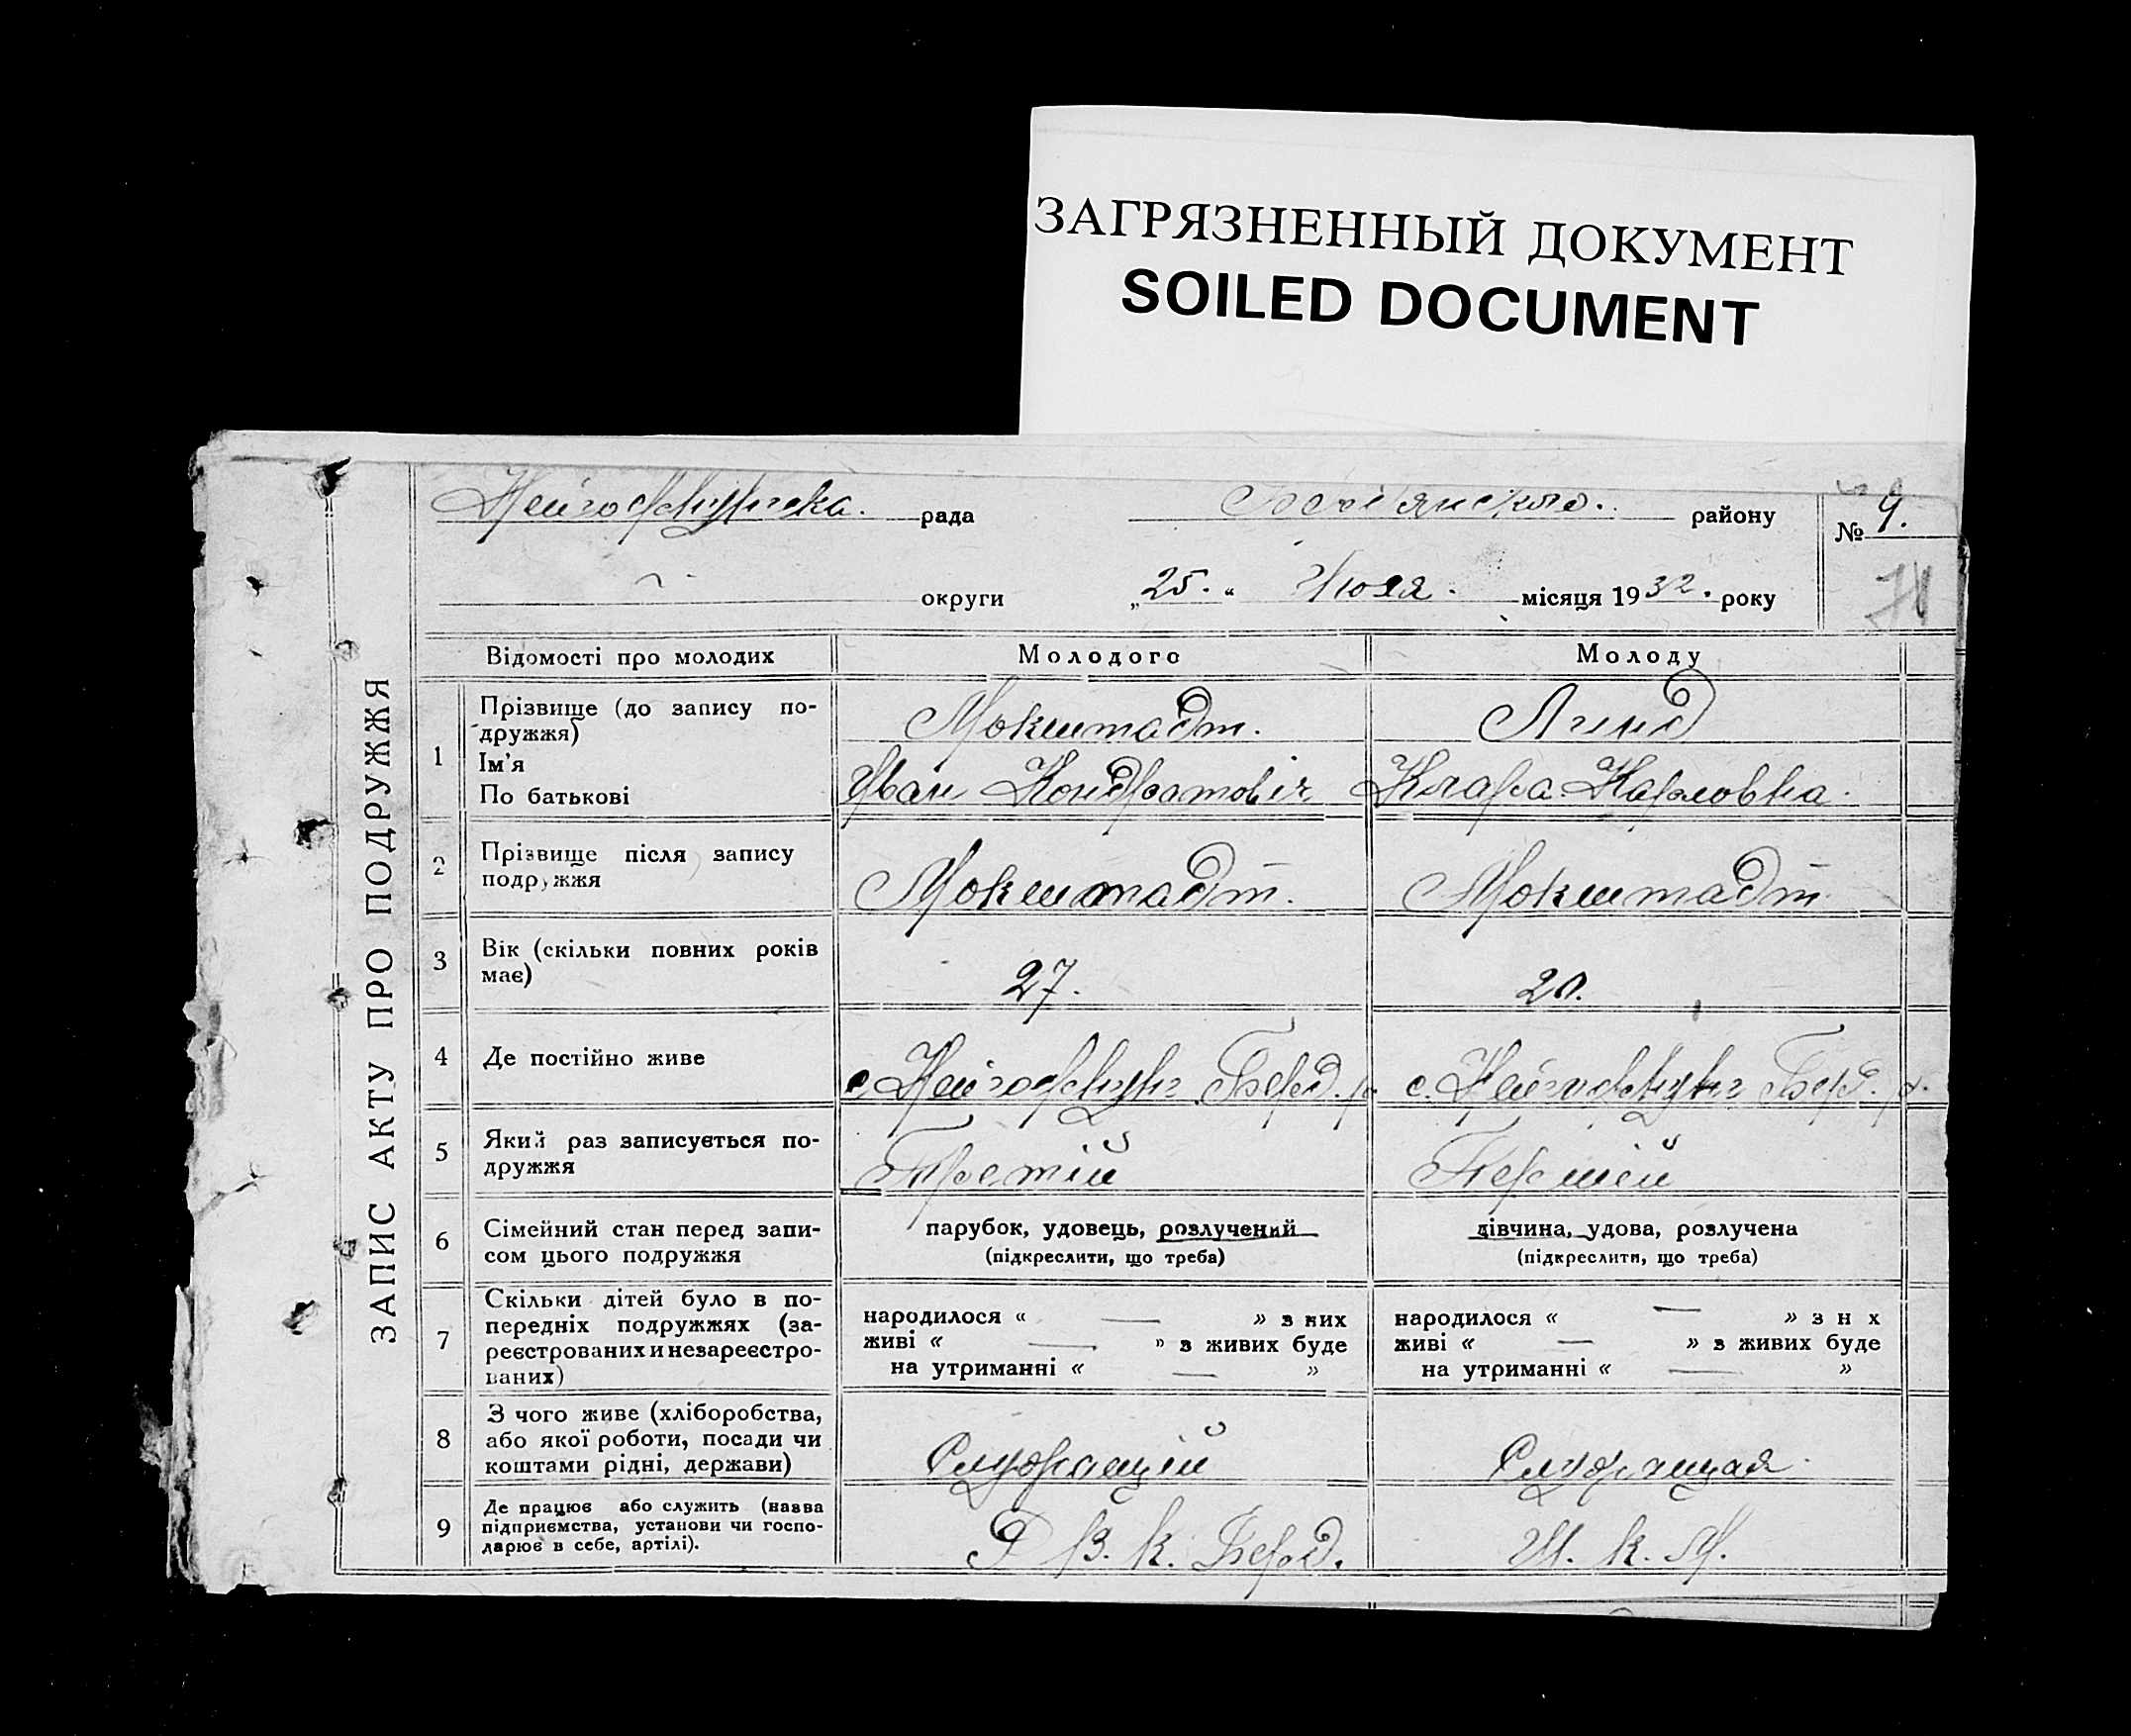 ЗАГРЯЗНЕННЫЙ ДОКУМЕНТ
SOILED DOCUMENT
Нейгофнунгска. рада района району № 9.
округи „25.“ Июля. місяця 1932. року
ЗАПИС АКТУ ПРО ПОДРУЖЖЯ
Відомості про молодих Молодого Молоду
1 Прізвище (до запису по-
дружжя) Мокштадт. Линд
Ім'я
По батькові Иван Кондратовіч Клара Карловна.
2 Прізвище після запису
подружжя Мокштадт. Мокштадт.
3 Вік (скільки повних років
має) 27. 20.
4 Де постійно живе с. Нейгофнунг Берд. р. с. Нейгофнунг Берд. р.
5 Який раз записується по-
дружжя Третій Першей
6 Сімейний стан перед запи-
сом цього подружжя
парубок, удовець, розлучений
(підкреслити, що треба)
дівчина, удова, розлучена
(підкреслити, що треба)
7 Скільки дітей було в по-
передніх подружжях (за-
реєстрованих и незареєстро-
ваних)
народилося « — » з них
живі « — » з живих буде
на утриманні « — »
народилося « — » з н х
живі « — » з живих буде
на утриманні « — »
8 З чого живе (хліборобства,
або якої роботи, посади чи
коштами рідні, держави) Служащій Служащая.
9 Де працює або служить (назва
підприємства, установи чи госпо-
дарює в себе, артілі). Р В. К. Берд. Ш. К. М.